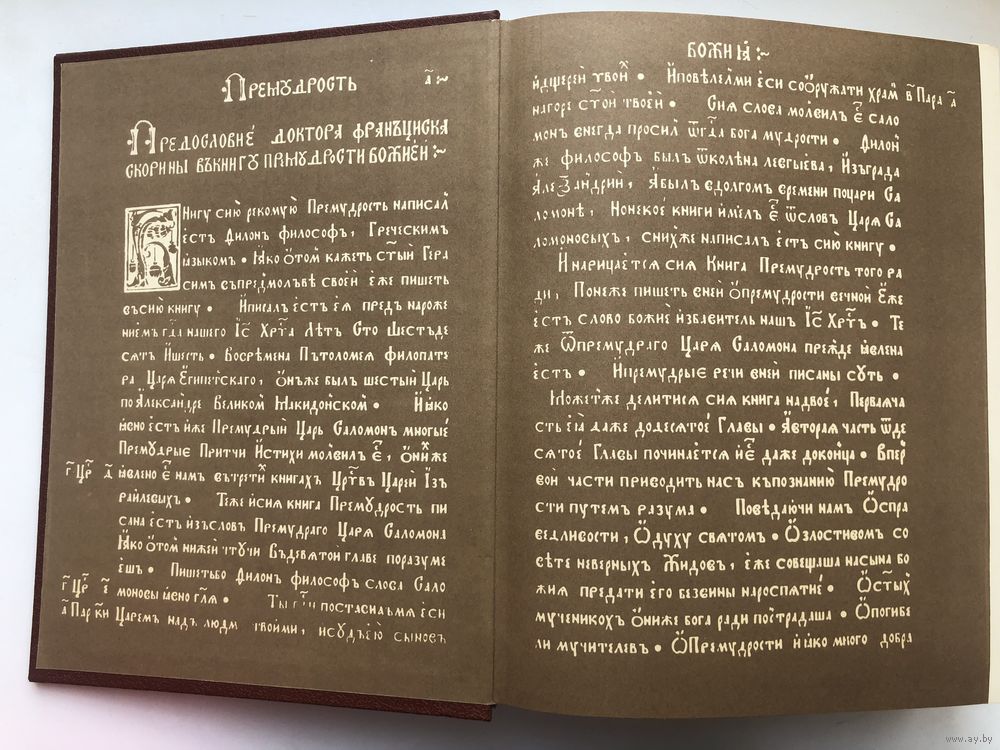 Премꙋдрость а҃
Предословиѐ доктора Франъциска
скорины въкнигꙋ прмꙋдрости божиеи
Книгꙋ сию рекомꙋю Премꙋдрость написал
естъ Ѳилонъ философъ, Греческимъ
ꙗзыкомъ • Ꙗко ѡтом кажеть ст҃ый Гера
симъ съпредмолъвѣ своей еже пишеть
въсию книгꙋ • Ипиcалъ естъ ея предъ нароже
ниемъ гд҃а нашего Іс҃ Хр҃та Лѣтъ Сто Шестьде
сятъ Ишесть • Восремена Пътоломея филопате
ра Царя Египетскаго, Онъже былъ шестый Царь
по Александре Великом Македонском • Иꙗко
ꙗсно естъ иже Премꙋдрый Царь Саломонъ многые
Премꙋдрые Притчи Истихи молвилъ Е҃, Они же
г҃ Цр҃ а҃ ꙗвлено Е҃ намъ вътрети книгахъ Цр҃твъ Царей Из
раилевыхъ • Теже исия книга Премꙋдрость пи
сана естъ изъсловъ Премꙋдраго Царя Саломона
Ꙗко ѡтом нижей чтꙋчи Въдевятои главе поразꙋме
ешъ • Пишетьбо Ѳилонъ философъ слова Сало
г҃ Цр҃ е҃ моновы ꙗсно гл҃я • Ты гд҃и постасилъмя еси
а҃ Пар Царемъ надъ людми твоими, исꙋдъею сыновъ
БОЖИꙖ
идщерей твоих • Иповѣлелми еси соорꙋжати храм в҃ Пара а҃
нагоре ст҃ой твоей • Сия слова молвил Е҃ сало
монъ енегда просил ѿгд҃а бога мꙋдрости • Ѳилон
же философъ былъ ѿколѣна левгыева, Изъграда
Александрии, Ꙗбылъ едолгомъ времени поцари Са
ломонѣ, Нонекое книги имел Е҃ ѿсловъ Царя Са
ломоновыхъ, снихже написал естъ сию книгꙋ •
И нарицается сия Книга Премꙋдрость того ра
ди, Понеже пишеть вней ѡпремꙋдрости вечной Еже
естъ слово божие избавитель нашъ Іс҃ Хр҃тъ • Те
же ѿпремꙋдраго Царя Саломона прежде ꙗвлена
естъ • Ипремꙋдрые речи вней писаны сꙋть •
Можетже делитися сия книга надвое, Перваяча
сть ея даже додесятое Главы • Авторая часть ѿде
сятое Главы починается иЕ҃ даже доконца • Впер
вой части приводить насъ къпознанию Премꙋдро
сти пꙋтемъ разꙋма • Поведаючи нам Ѡспра
ведливости, Ѡдꙋхꙋ святомъ • Ѡзлостивом со
вѣте неверныхъ Жидовъ, еже совещаша насына бо
жия предати его безвины нароспятие • Ѡст҃ых
мꙋченикохъ ѡниже бога ради пострадаша • Ѡпогибе
ли мꙋчителевъ • ѠПремꙋдрости иꙗко много добра
www.ay.by